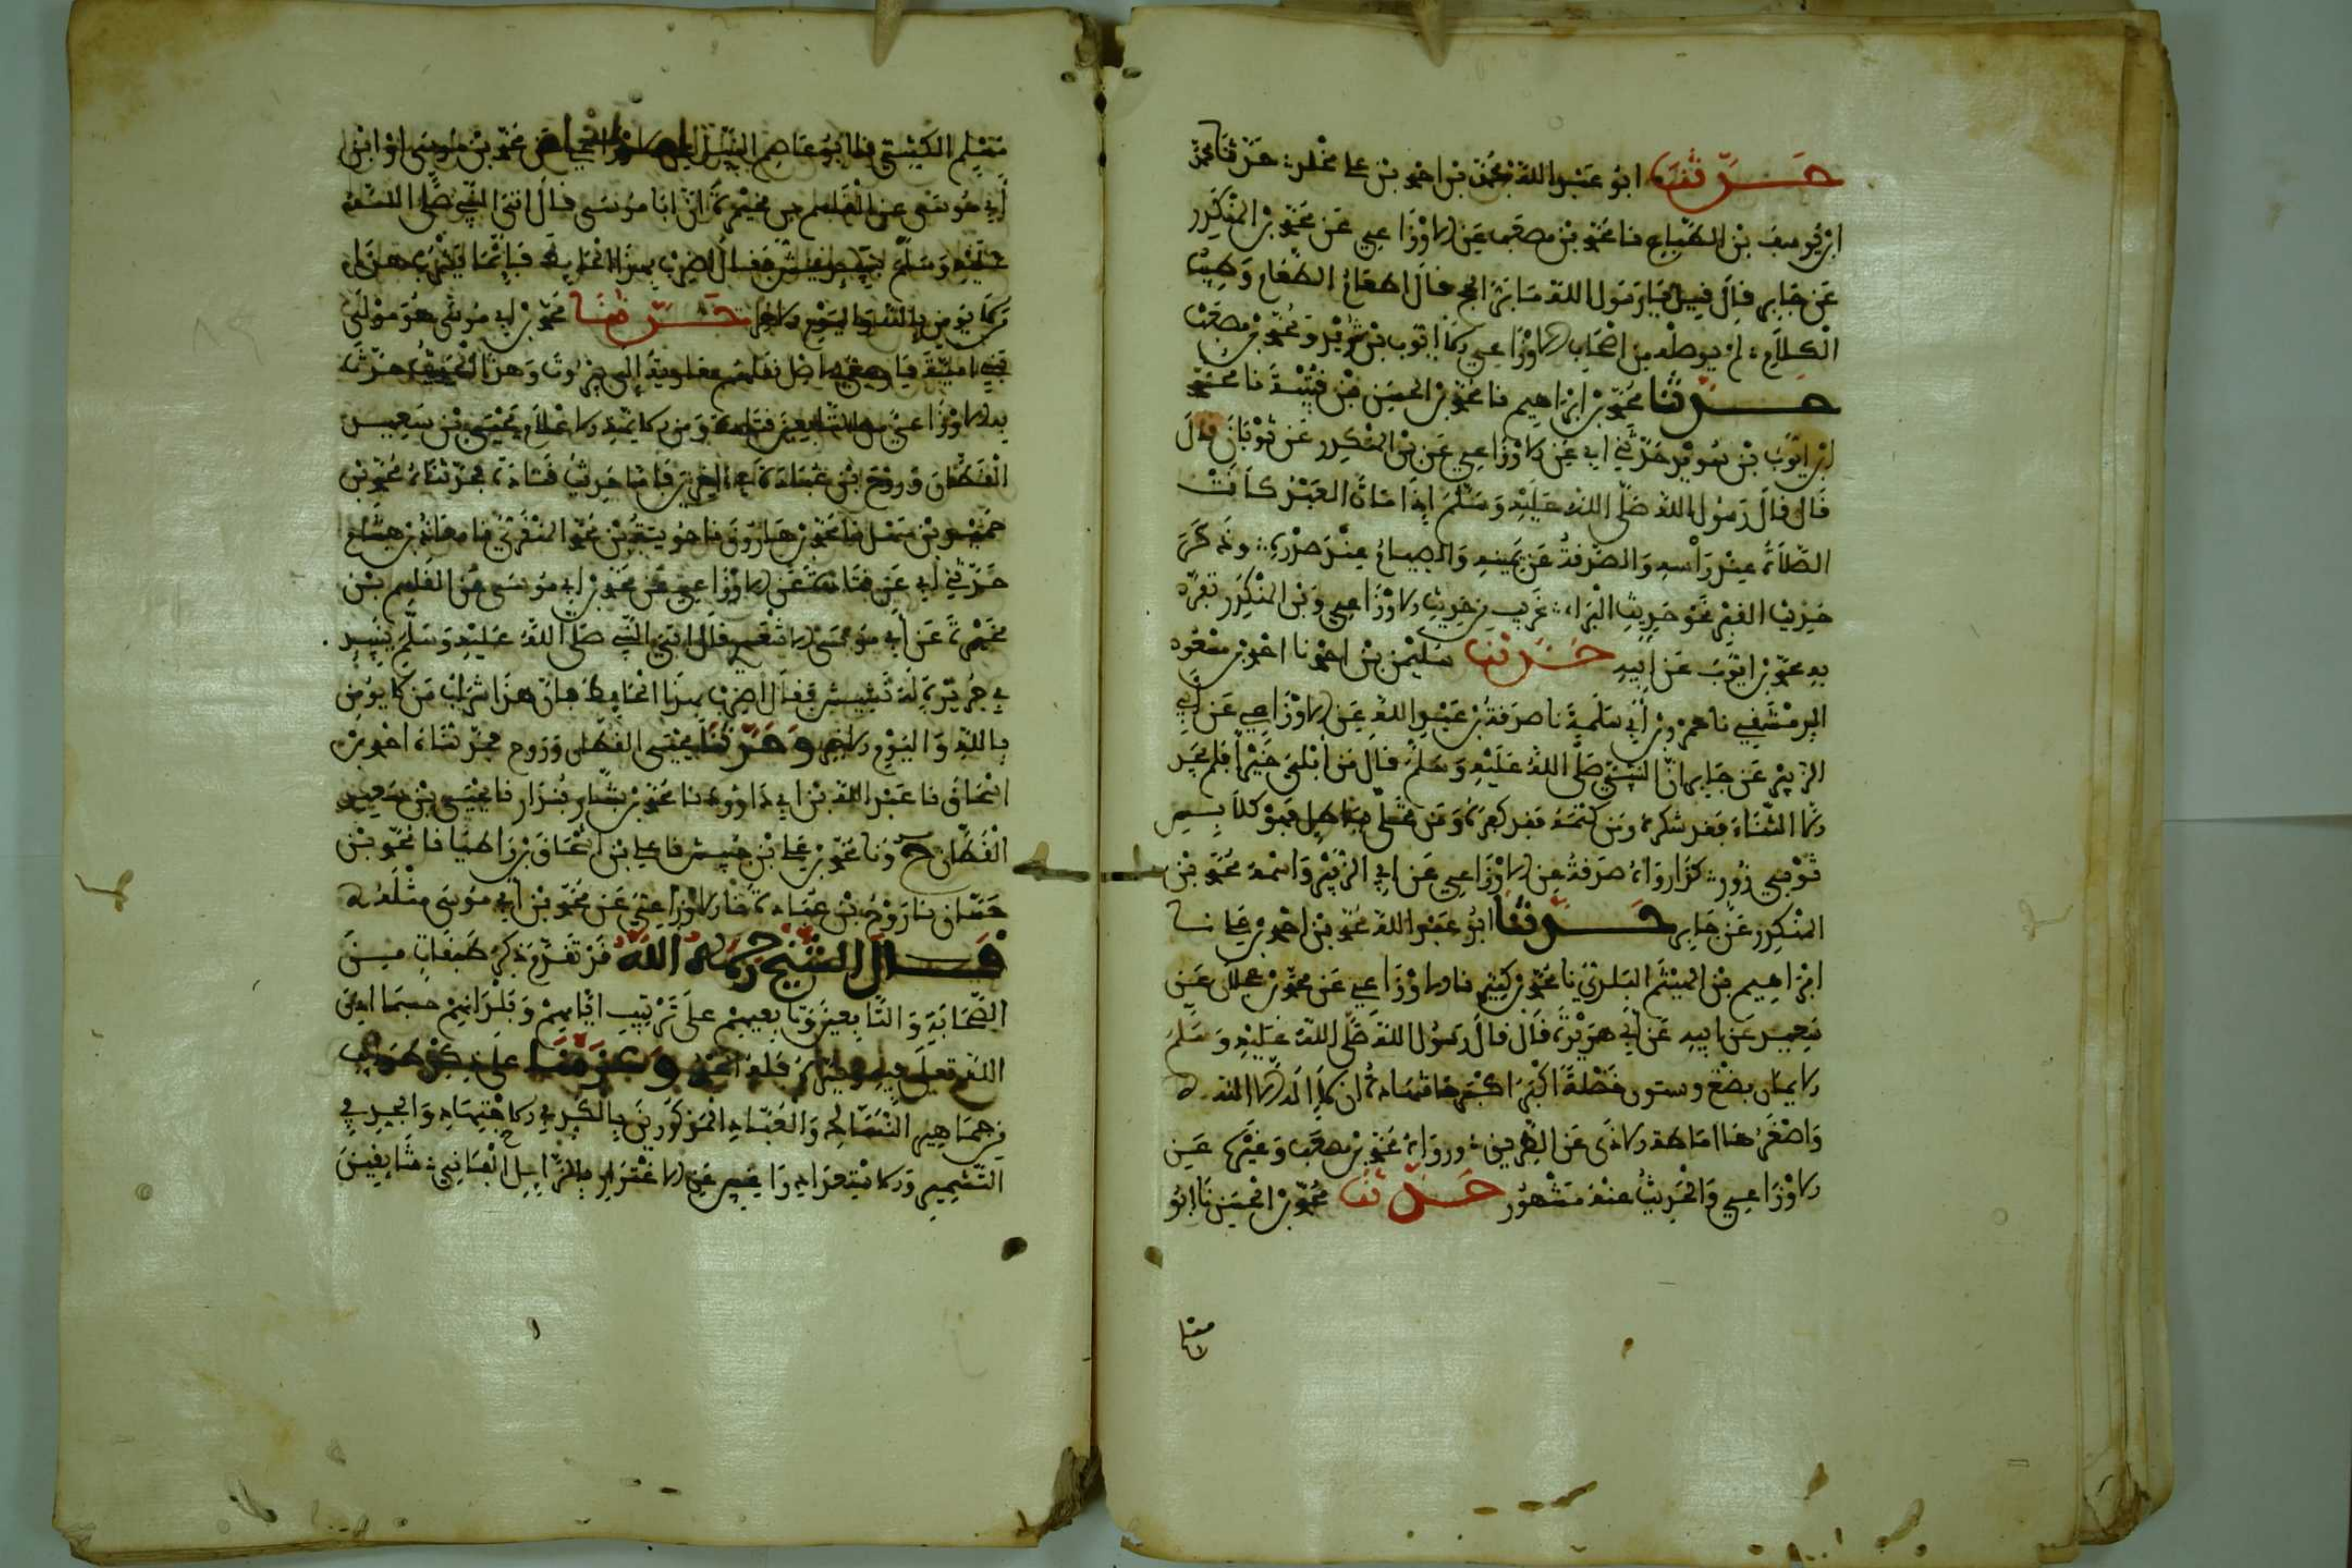 حدثنا ابو عبد الله محمد بن احمد بن علي مخلد حدثنا محمد
ابن يوسف بن الطباع نا محمد بن مصعب عن الاوزاعي عن محمد بن المنكدر
عن جابر قال قيل يا رسول الله ما بر الحج قال اطعام الطعام وطيب
الكلام لم يوصله من اصحاب الاوزاعي الا ايوب بن سويد ومحمد بن مصعب
حدثنا محمد بن ابراهيم نا محمد بن الحسن بن قتيبة نا محمد
ابن ايوب بن سويد حدثني ابي عن الاوزاعي عن بن المنكدر عن ثوبان قال
قال قال رسول الله صلى الله عليه وسلم اذا مات العبد كانت
الصلاة عند راسه والصدقة عن يمينه والصيام عند صدره وذكر
حديث القبر نحو حديث البراء غريب من حديث الاوزاعي وبن المنكدر تفرد
به محمد بن ايوب عن ابيه حدثنا سليمن بن احمد نا احمد بن مسعود
الدمشقي نا عمرو بن ابي سلمة نا صدقة بن عبد الله عن الاوزاعي عن ابي
الزبير عن جابر ان النبي صلى الله عليه وسلم قال من ابلي خيرا فلم يجد
الا الثناء فقد شكره ومن كتمه فقد كفره ومن تحلى بباطل فهو كلابس
ثوبي زور كذا رواه صدقة عن الاوزاعي عن ابي الزبير واسمه محمد بن
المنكدر عن جابر حدثنا ابو عبد الله محمد بن احمد بن علي نا
ابراهيم بن الهيثم البلدي نا محمد بن كثير نا الاوزاعي عن محمد بن عجلان عن
سعيد عن ابيه عن ابي هريرة قال قال رسول الله صلى الله عليه وسلم
الايمان بضع وستون خصلة اكبرها شهادة ان لا اله الا الله
واصغرها اماطة الاذى عن الطريق ورواه محمد بن مصعب وغيره عن
الاوزاعي والحديث عنه مشهور حدثنا محمد بن الحسن نا ابو
مسلم الكشي نا ابو عاصم النبيل عن الاوزاعي عن محمد بن موسى او ابن
ابي موسى عن القاسم بن مخيمرة ان ابا موسى قال اتى النبي صلى الله
عليه وسلم بنبيذ ينش فقال اضرب بهذا الحايط فانما يشرب هذا
من لا يومن بالله واليوم الاخر حدثنا محمد بن ابي موسى هو مولى
بني امية اصل نقلهم معاوية الى بيروت وهذا الحديث حدث
به الاوزاعي من التابعين قتادة ومن الايمة الاعلام يحيى بن سعيد
القطان وروح بن عبادة فاما حديث قتادة فحدثناه محمد بن
حميد بن سهل نا محمد بن هارون نا جويرية بن محمد المنقري نا معاذ بن هشام
حدثني ابي عن قتادة عن الاوزاعي عن محمد بن ابي موسى عن القاسم بن
مخيمرة عن ابي موسى الاشعري قال اتي النبي صلى الله عليه وسلم بنبيذ
في جر يرى له نشيش فقال اضرب بهذا الحايط فان هذا شراب من لا يومن
بالله واليوم الاخر وحدثنا يحيى القطان وروح فحدثناه احمد بن
اسحاق نا عبد الله بن ابي داوود نا محمد بن بشار بندار نا يحيى بن سعيد
القطان ح ونا محمد بن علي بن حبيش نا علي بن اسحاق بن زاطيا نا محمد بن
حسان نا روح بن عبادة نا الاوزاعي عن محمد بن ابي موسى مثله
قال الشيخ رحمه الله قد تقدم ذكر طبقات من
الصحابة والتابعين وتابعيهم على ترتيب ايامهم وبلدانهم حسبما اذن
الله تعلى فيه ويسر فله الحمد وعزمنا على ذكر طوايف
من جماهير النساك والعباد المذكورين بالكد في الاجتهاد والجد في
التشمير والاستعداد عن الاغترار بالزايل الفاني سابقين